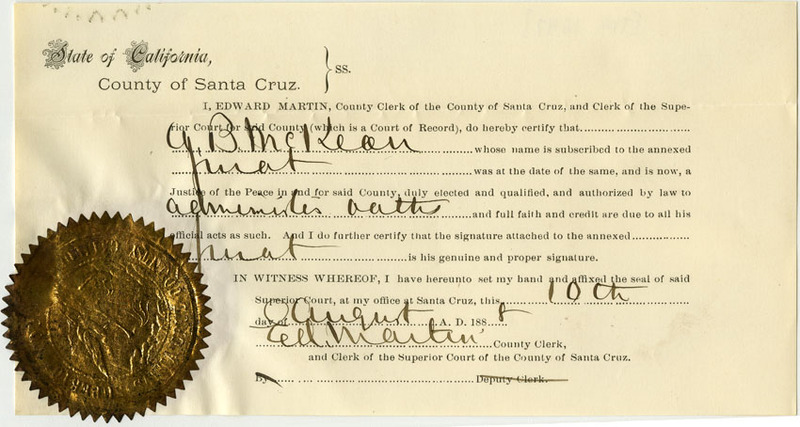 State of California,
County of Santa Cruz. } SS.
I, EDWARD MARTIN, County Clerk of the County of Santa Cruz, and Clerk of the Supe-
rior Court for said County (which is a Court of Record), do hereby certify that
McKean whose name is subscribed to the annexed
jurat was at the date of the same, and is now, a
Justice of the Peace in and for said County, duly elected and qualified, and authorized by law to
administer oaths and full faith and credit are due to all his
official acts as such. And I do further certify that the signature attached to the annexed
jurat is his genuine and proper signature.
IN WITNESS WHEREOF, I have hereunto set my hand and affixed the seal of said
Superior Court, at my office at Santa Cruz, this 10th
day of August A. D. 1888
Ed. Martin County Clerk,
and Clerk of the Superior Court of the County of Santa Cruz.
By Deputy Clerk.